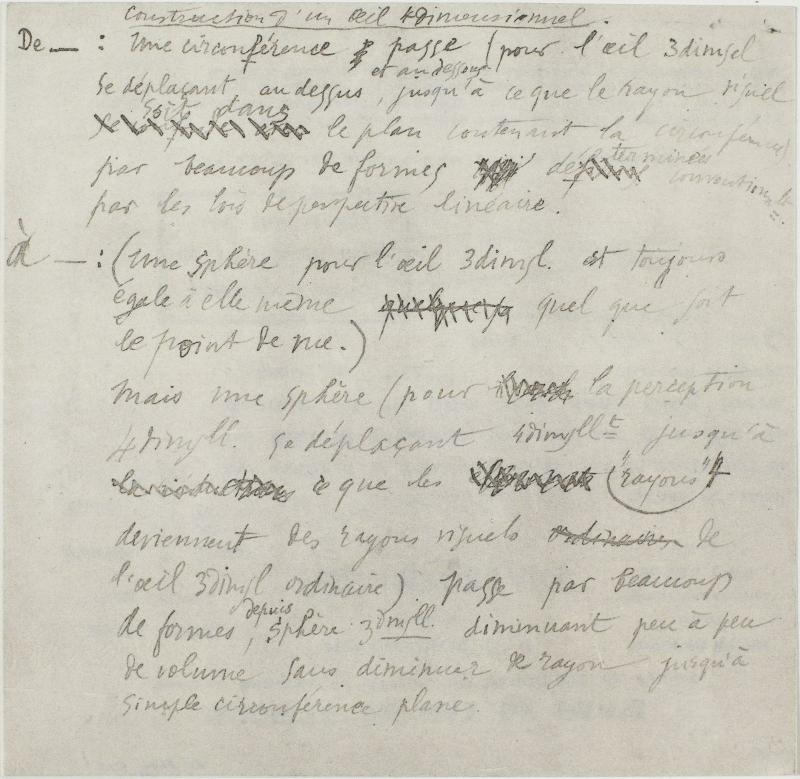 Construction d'un œil 4dimensionnel.
De — : Une circonférence passe (pour l'œil 3dimsel
se déplaçant au dessus et au dessous, jusqu'à ce que le rayon visuel
soit dans le plan contenant la circonférence)
par beaucoup de formes déterminées conventionllt
par les lois de perspective linéaire.
à — : (Une sphère pour l'œil 3dimsl. est toujours
égale à elle même quelquefois quel que soit
le point de vue.)
Mais une sphère (pour la perception
4dimsll. se déplaçant 4dimsllt jusqu'à
ce que les ("rayons" 4
deviennent des rayons visuels ordinaires de
l'œil 3dimsl ordinaire) passe par beaucoup
de formes, depuis sphère 3dimsll. diminuant peu à peu
de volume sans diminuer de rayon jusqu'à
simple circonférence plane.